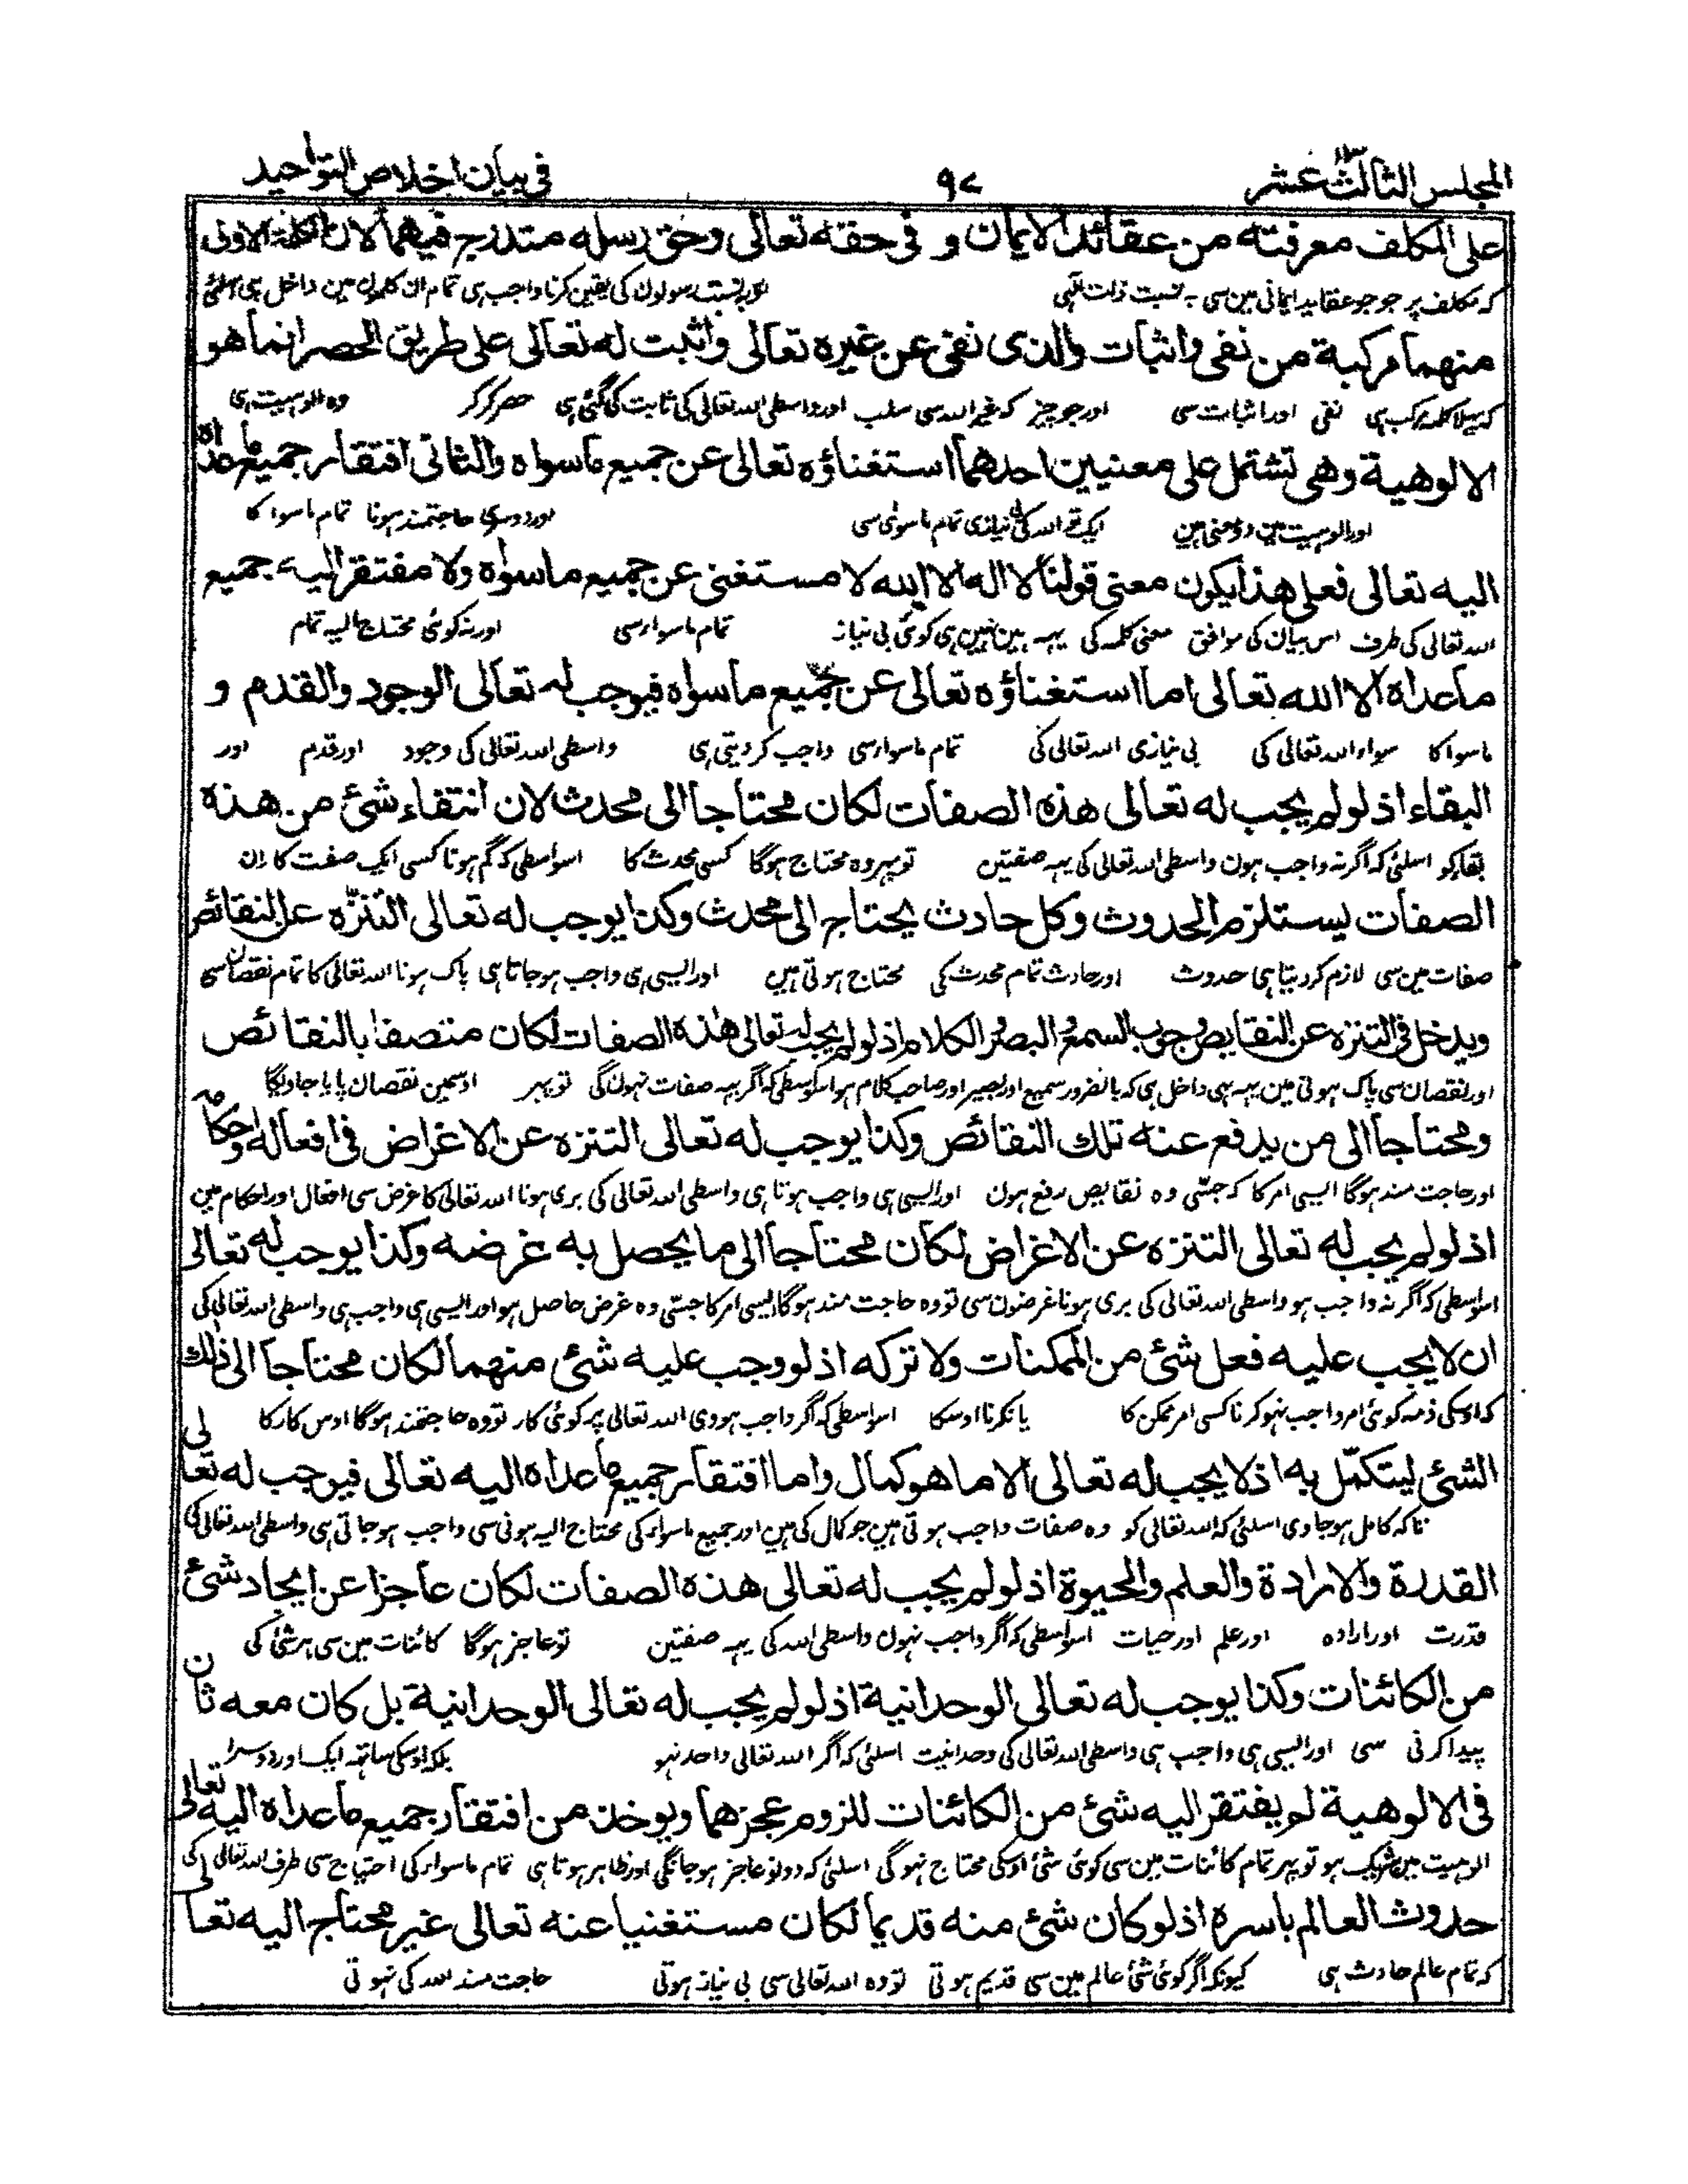 المجلس الثالث عشر
٩٧
في بيان اخلاص التوحيد
على المكلف معرفته من عقائد الايمان و في حقه تعالى وحق رسله متدرج فيهما لان الكلمة الاولى
كه مكلف پر جو جو عقايد ايمانى مين سى به نسبت ذات الٰهى اور به نسبت رسولون كى يقين كرنا واجب ہى تمام ان كلمون مين داخل ہى اسلئى
منهما مركبة من نفى واثبات والذى نفى عن غيره تعالى واثبت له تعالى على طريق الحصر انما هو
كه پہلا كلمه مركب ہى نفى اور اثبات سى اور جو چيز كه غير الله سى سلب اور واسطى الله تعالى كى ثابت كى گئى ہى حصر كر كر وه الوہيت ہى
الالوهية وهى تشتمل على معنيين احدهما استغناؤه تعالى عن جميع ماسواه والثانى افتقار جميع ماعداه
اور الوہيت مين دو معنى ہين ايك تو الله كى بى نيازى تمام ماسوٰى سى اور دوسرى حاجتمند ہونا تمام ماسوا كا
اليه تعالى فعلى هذا يكون معنى قولنا لا اله الا الله لا مستغنى عن جميع ماسواه ولا مفتقر اليه جميع
الله تعالى كى طرف اس بيان كى موافق معنى كلمه كى يہه ہين نہين ہى كوئى بى نياز تمام ماسوا سى اور نه كوئى محتاج اليه تمام
ماعداه الا الله تعالى اما استغناؤه تعالى عن جميع ماسواه فيوجب له تعالى الوجود والقدم و
ماسوا كا سواء الله تعالى كى بى نيازى الله تعالى كى تمام ماسوا سى واجب كر ديتى ہى واسطى الله تعالى كى وجود اور قدم اور
البقاء اذ لو لم يجب له تعالى هذه الصفات لكان محتاجا الى محدث لان انتفاء شئ من هذه
بقا كو اسلئى كه اگر نه واجب ہون واسطى الله تعالى كى يہه صفتين تو پہر وه محتاج ہوگا كسى محدث كا اسواسطى كه گم ہونا كسى ايك صفت كا ان
الصفات يستلزم الحدوث وكل حادث يحتاج الى محدث وكذا يوجب له تعالى التنزّه عن النقائص
صفات مين سى لازم كر ديتا ہى حدوث اور حادث تمام محدث كى محتاج ہوتى ہين اور ايسى ہى واجب ہو جاتا ہى پاك ہونا الله تعالى كا تمام نقصان سى
ويدخل فى التنزه عن النقايص وجوب السمع والبصر والكلام اذ لو لم يجب له تعالى هذه الصفات لكان متصفا بالنقائص
اور نقصان سى پاك ہوتى مين يہه بہى داخل ہى كه بالضرور سميع اور بصير اور صاحب كلام ہو اسواسطى كه اگر يہه صفات نہون گى تو پہر اوسمين نقصان پايا جاويگا
ومحتاجا الى من يدفع عنه تلك النقائص وكذا يوجب له تعالى التنزه عن الاغراض فى افعاله واحكامه
اور حاجت مند ہوگا ايسى امر كا كه جسّى وه نقايص رفع ہون اور ايسى ہى واجب ہوتا ہى واسطى الله تعالى كى برى ہونا الله تعالى كا غرض سى افعال اور احكام مين
اذ لو لم يجب له تعالى التنزه عن الاغراض لكان محتاجا الى ما يحصل به غرضه وكذا يوجب له تعالى
اسواسطى كه اگر نه واجب ہو واسطى الله تعالى كى برى ہونا غرضون سى تو وه حاجت مند ہوگا ايسى امر كا جسّى وه غرض حاصل ہو اور ايسى ہى واجب ہى واسطى الله تعالى كى
ان لا يجب عليه فعل شئ من الممكنات ولا تركه اذ لو وجب عليه شئ منهما لكان محتاجا الى ذلك
كه اوسكى ذمه كوئى امر واجب نہو كرنا كسى امر ممكن كا يا نكرنا اوسكا اسواسطى كه اگر واجب ہووى الله تعالى پر كوئى كار تو وه حاجتمند ہوگا اوس كار كا
الشئ ليتكمّل به اذ لا يجب له تعالى الا ما هو كمال واما افتقار جميع ماعداه اليه تعالى فيوجب له تعالى
تا كه كامل ہو جاوى اسلئى كه الله تعالى كو وه صفات واجب ہوتى ہين جو كمال كى ہين اور جميع ماسواء كى محتاج اليه ہونى سى واجب ہو جاتى ہى واسطى الله تعالى كى
القدرة والارادة والعلم والحيوة اذ لو لم يجب له تعالى هذه الصفات لكان عاجزا عن ايجاد شئ
قدرت اور اراده اور علم اور حيات اسواسطى كه اگر واجب نہون واسطى الله كى يہه صفتين تو عاجز ہوگا كائنات مين سى ہر شئ كى
من الكائنات وكذا يوجب له تعالى الوحدانية اذ لو لم يجب له تعالى الوحدانية بل كان معه ثان
پيدا كرنى سى اور ايسى ہى واجب ہى واسطى الله تعالى كى وحدانيت اسلئى كه اگر الله تعالى واحد نہو بلكه اوسكى ساتهه ايك اور دوسرا
فى الالوهية لم يفتقر اليه شئ من الكائنات للزوم عجزهما ويوخذ من افتقار جميع ماعداه اليه تعالى
الوہيت مين شريك ہو تو پہر تمام كائنات مين سى كوئى شئ اوسكى محتاج نہوگى اسلئى كه دونو عاجز ہو جائنگى اور ظاہر ہوتا ہى تمام ماسواء كى احتياج سى طرف الله تعالى كى
حدوث العالم باسره اذ لو كان شئ منه قديما لكان مستغنيا عنه تعالى غير محتاج اليه تعالى
كه تمام عالم حادث ہى كيونكه اگر كوئى شئ عالم مين سى قديم ہوتى تو وه الله تعالى سى بى نياز ہوتى حاجت مند الله كى نہوتى